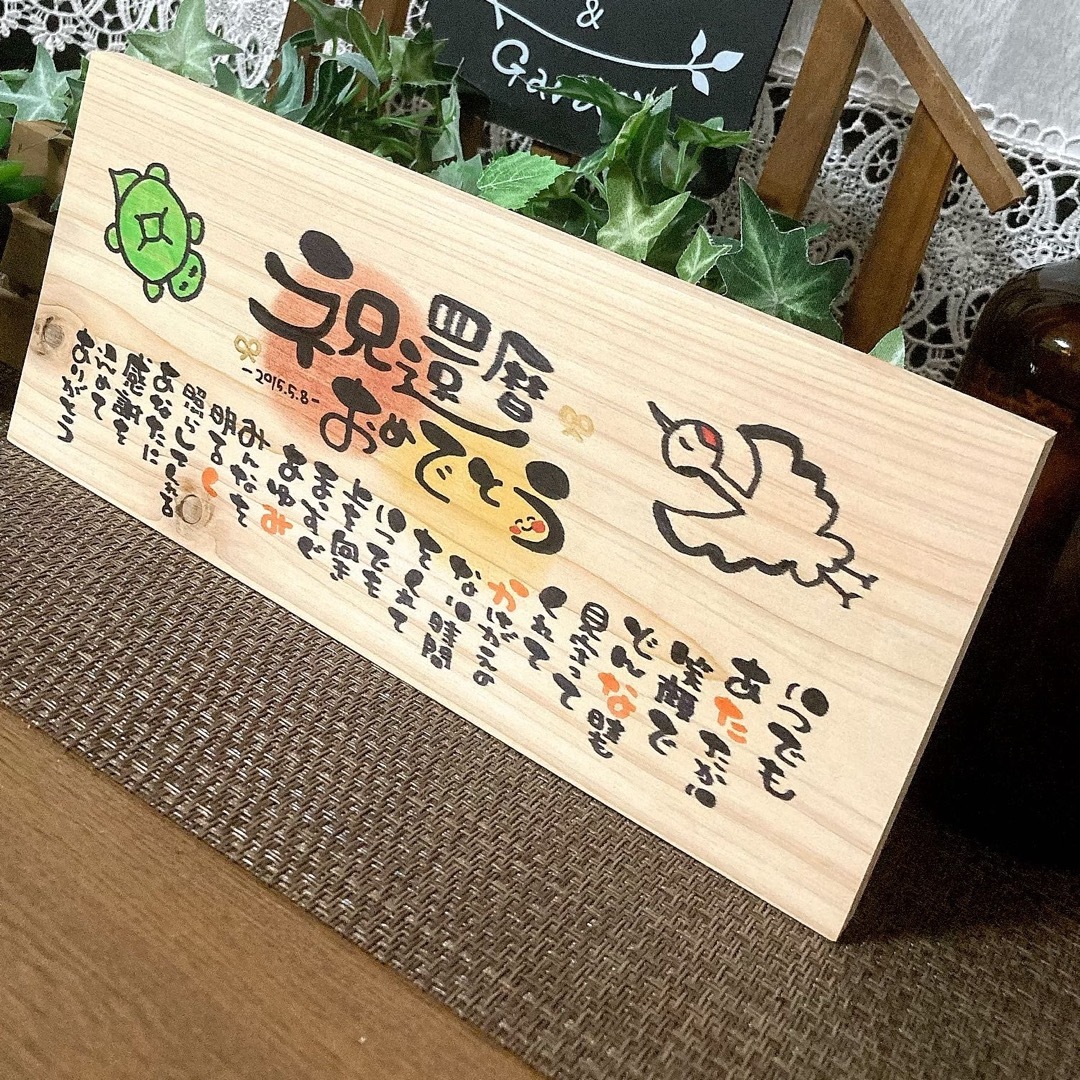 &
Garden
祝還暦
おめでとう
-2015.5.8-
いつでも
あたたかい
笑顔で
どんな時も
見守って
くれて
かけがえの
ない時間
をくれて
いつでも
上を向き
まっすぐ
あゆみ
みんなを
明るく
照らしてくれる
あなたに
感謝を
こめて
ありがとう